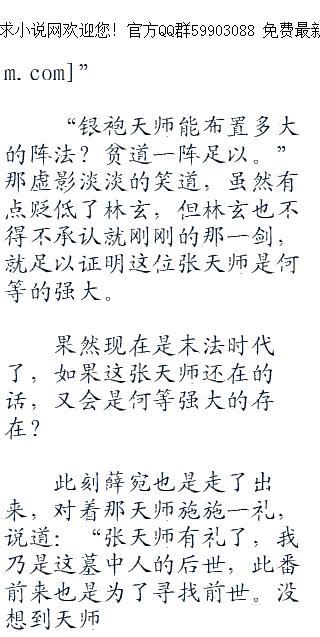 求小说网欢迎您! 官方QQ群59903088 免费最新
m.com]”
“银袍天师能布置多大
的阵法？贫道一阵足以。”
那虚影淡淡的笑道，虽然有
点贬低了林玄，但林玄也不
得不承认就刚刚的那一剑，
就足以证明这位张天师是何
等的强大。
果然现在是末法时代
了，如果这张天师还在的
话，又会是何等强大的存
在？
此刻薛宛也是走了出
来，对着那天师施施一礼，
说道：“张天师有礼了，我
乃是这墓中人的后世，此番
前来也是为了寻找前世。没
想到天师